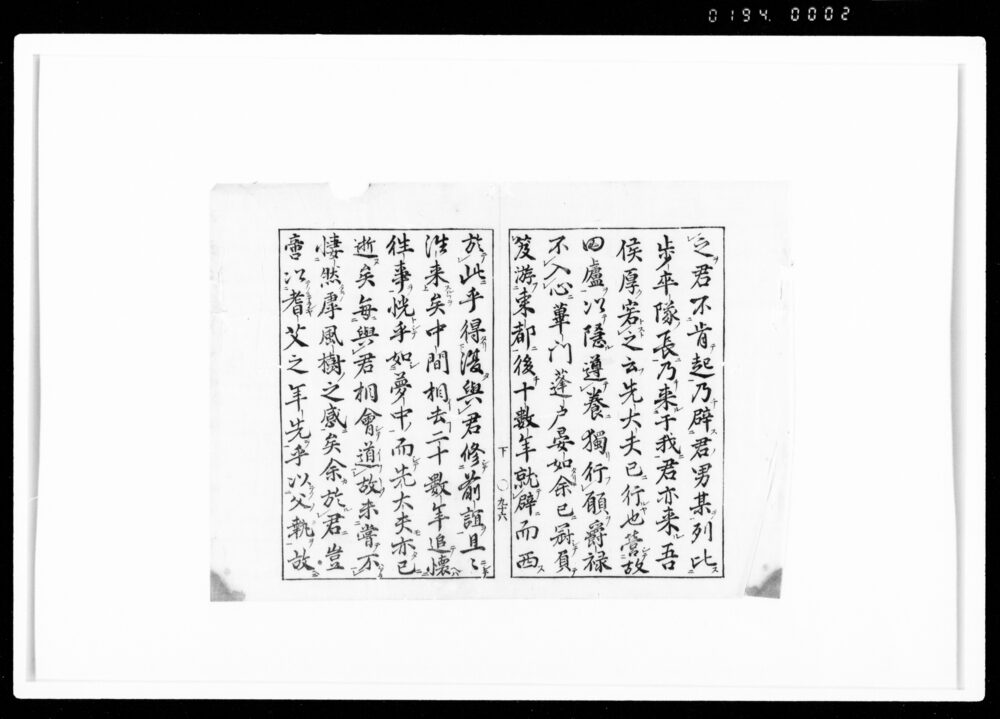 0194. 0002
之君不肯起乃辟君男某列比
步卒隊長乃来于我君亦来吾
侯厚宻之云先大夫已行也營故
田廬以隱遵養獨行願爵禄
不入心蓽門蓬戸晏如余已冠負
笈游東都後十數年就辟而西
下 〇九十六
於此乎得復與君修前誼且〻
徃来矣中間相去二十數年追懷
徃事恍乎如夢中而先大夫亦已
逝矣每與君相會道故未嘗不
悽然厚風樹之感矣余於君豈
啻以耆艾之年先乎以父執故